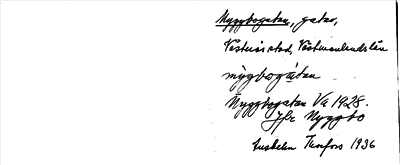 Myggbogatan, gata,
Västerås stad, Västmanlands län
mỳgbogàtan
Myggbogatan Va 1928.
Jfr Myggbo
Torfors 1936